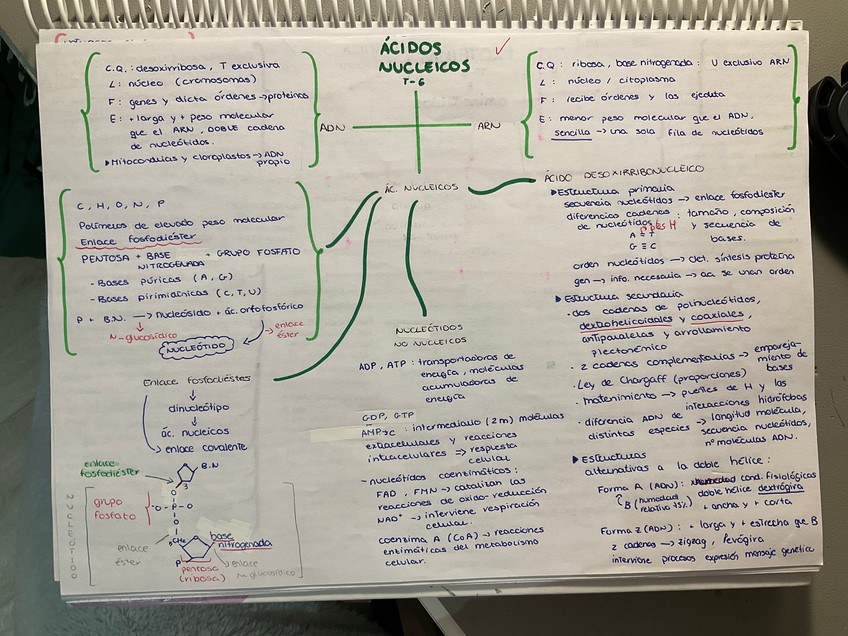 ÁCIDOS
NUCLEICOS
T-6
ADN
ARN
C.Q.: desoxirribosa, T exclusiva
L: núcleo (cromosomas)
F: genes y dicta órdenes → proteínas
E: + larga y + peso molecular
que el ARN, DOBLE cadena
de nucleótidos.
Mitocondrias y cloroplastos → ADN
propio
C.Q: ribosa, base nitrogenada: U exclusivo ARN
L: núcleo / citoplasma
F: recibe órdenes y las ejecuta
E: menor peso molecular que el ADN,
sencilla → una sola fila de nucleótidos
ÁC. NUCLEICOS
C, H, O, N, P
Polímeros de elevado peso molecular
Enlace fosfodiéster
PENTOSA + BASE + GRUPO FOSFATO
NITROGENADA
- Bases púricas (A, G)
- Bases pirimidínicas (C, T, U)
P + B.N. → nucleósido + ác. ortofosfórico
N-glucosídico
enlace
éster
NUCLEÓTIDO
Enlace fosfodiéstes
dinucleótipo
ác. nucleicos
enlace covalente
enlace
fosfodiéster
B.N
3
O
grupo
fosfato
O - P - O
O
enlace
éster
CH2
base
nitrogenada
P
pentosa
(ribosa)
enlace
N glucosídico
NUCLEÓTIDO
NUCLEÓTIDOS
NO NUCLEICOS
ADP, ATP: transportadoras de
energía, moléculas
acumuladoras de
energía
GDP, GTP
AMPc: intermediario (2m) moléculas
extracelulares y reacciones
intracelulares → respuesta
celular
- nucleótidos coenzimáticos:
FAD, FMN → catalizan las
reacciones de oxido-reducción
NAD+ → interviene respiración
celular.
coenzima A (CoA) → reacciones
enzimáticas del metabolismo
celular.
ÁCIDO DESOXIRRIBONUCLEICO
Estructura primaria
secuencia nucleótidos → enlace fosfodiéster
diferencias cadenas: tamaño, composición
de nucleótidos y secuencia de
bases.
A = T
G ≡ C
orden nucleótidos → det. síntesis proteína
gen → info. necesaria → aa se unan orden
Estructura secundaria
· dos cadenas de polinucleótidos,
dextrohelicoidales y coaxiales,
antiparalelas y arrollamiento
plectonémico
· 2 cadenas complementarias → empareja-
miento de
bases
· Ley de Chargaff (proporciones)
· matenimiento → puentes de H y las
interacciones hidrófobas
· diferencia ADN de
distintas especies → longitud molécula,
secuencia nucleótidos,
nº moléculas ADN.
Estructuras
alternativas a la doble hélice:
Forma A (ADN): cond. fisiológicas
B (humedad
relativa 75%)
doble hélice dextrógira
+ ancha y + corta
Forma Z (ADN): + larga y + estrecha que B
2 cadenas → zigzag, levógira
interviene procesos expresión mensaje genético